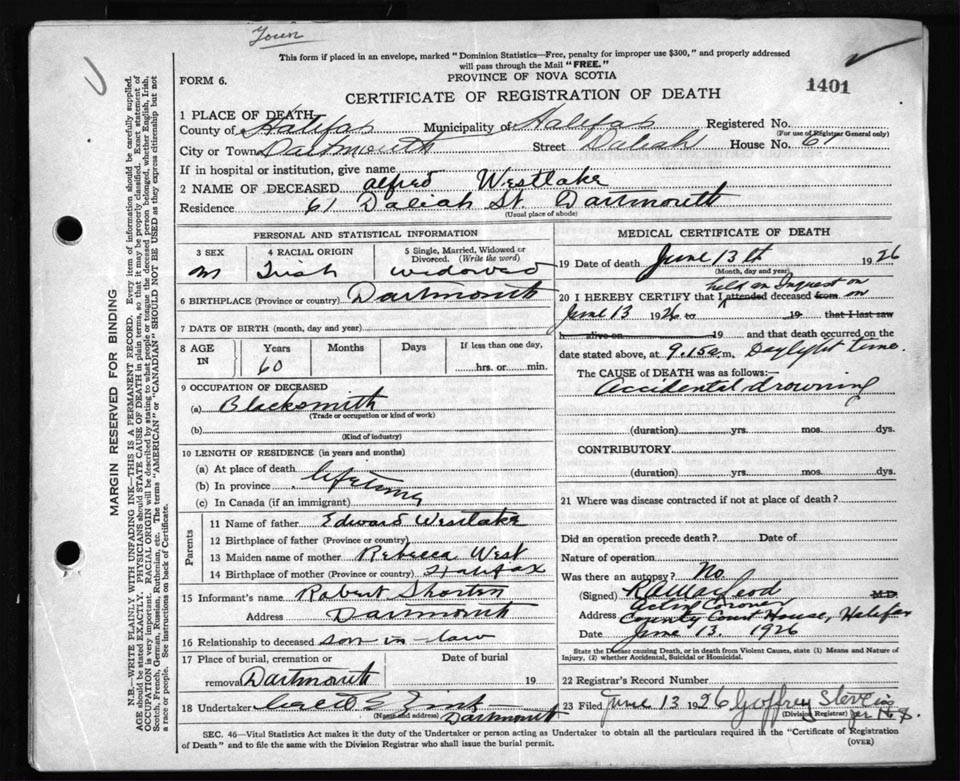 Town
This form if placed in an envelope, marked "Dominion Statistics—Free, penalty for improper use $300," and properly addressed
will pass through the Mail "FREE."
FORM 6.
PROVINCE OF NOVA SCOTIA
1401
CERTIFICATE OF REGISTRATION OF DEATH
1 PLACE OF DEATH
County of Halifax Municipality of Halifax Registered No.
(For use of Registrar General only)
City or Town Dartmouth Street Daliah House No. 61
If in hospital or institution, give name
2 NAME OF DECEASED Alfred Westlake
Residence 61 Daliah St. Dartmouth
(Usual place of abode)
PERSONAL AND STATISTICAL INFORMATION
3 SEX 4 RACIAL ORIGIN 5 Single, Married, Widowed or Divorced. (Write the word)
m Irish widowed
6 BIRTHPLACE (Province or country) Dartmouth
7 DATE OF BIRTH (month, day and year)
8 AGE IN Years Months Days If less than one day,
60 hrs. or min.
9 OCCUPATION OF DECEASED
(a) Blacksmith
(Trade or occupation or kind of work)
(b)
(Kind of industry)
10 LENGTH OF RESIDENCE (in years and months)
(a) At place of death
(b) In province lifetime
(c) In Canada (if an immigrant)
Parents
11 Name of father Edward Westlake
12 Birthplace of father (Province or country)
13 Maiden name of mother Rebecca West
14 Birthplace of mother (Province or country) Halifax
15 Informant's name Robert
Address Dartmouth
16 Relationship to deceased son in law
17 Place of burial, cremation or removal Dartmouth Date of burial 19
18 Undertaker
(Name and address) Dartmouth
MEDICAL CERTIFICATE OF DEATH
19 Date of death June 13th 1926
(Month, day and year)
held an Inquest on
20 I HEREBY CERTIFY that I attended deceased from on
June 13 1926 to 19 that I last saw
h alive on 19 and that death occurred on
date stated above, at 9.15 m. Daylight time.
The CAUSE of DEATH was as follows:—
Accidental drowning
(duration) yrs. mos. dys.
CONTRIBUTORY
(duration) yrs. mos. dys.
21 Where was disease contracted if not at place of death?
Did an operation precede death? Date of
Nature of operation
Was there an autopsy? No
(Signed) MacLeod M.D.
Acting Coroner
Address County Court House, Halifax
Date June 13. 1926
State the Disease causing Death, or in death from Violent Causes, state (1) Means and Nature of
Injury, (2) whether Accidental, Suicidal or Homicidal.
22 Registrar's Record Number
23 Filed June 13 1926 Geoffrey
(Division Registrar) per
SEC. 46—Vital Statistics Act makes it the duty of the Undertaker or person acting as Undertaker to obtain all the particulars required in the "Certificate of Registration
of Death" and to file the same with the Division Registrar who shall issue the burial permit.
(OVER)
MARGIN RESERVED FOR BINDING
N.B.—WRITE PLAINLY, WITH UNFADING INK—THIS IS A PERMANENT RECORD. Every item of information should be carefully supplied.
AGE should be stated EXACTLY. PHYSICIANS should STATE CAUSE OF DEATH in plain terms, so that it may be properly classified. Exact statement of
OCCUPATION is very important. RACIAL ORIGIN will be described by stating to what people or tongue the deceased person belonged, whether English, Irish,
Scotch, French, German, Russian, Ruthenian, etc. The terms "AMERICAN" or "CANADIAN" SHOULD NOT BE USED as they express citizenship but not
a race or people. See instructions on back of Certificate.